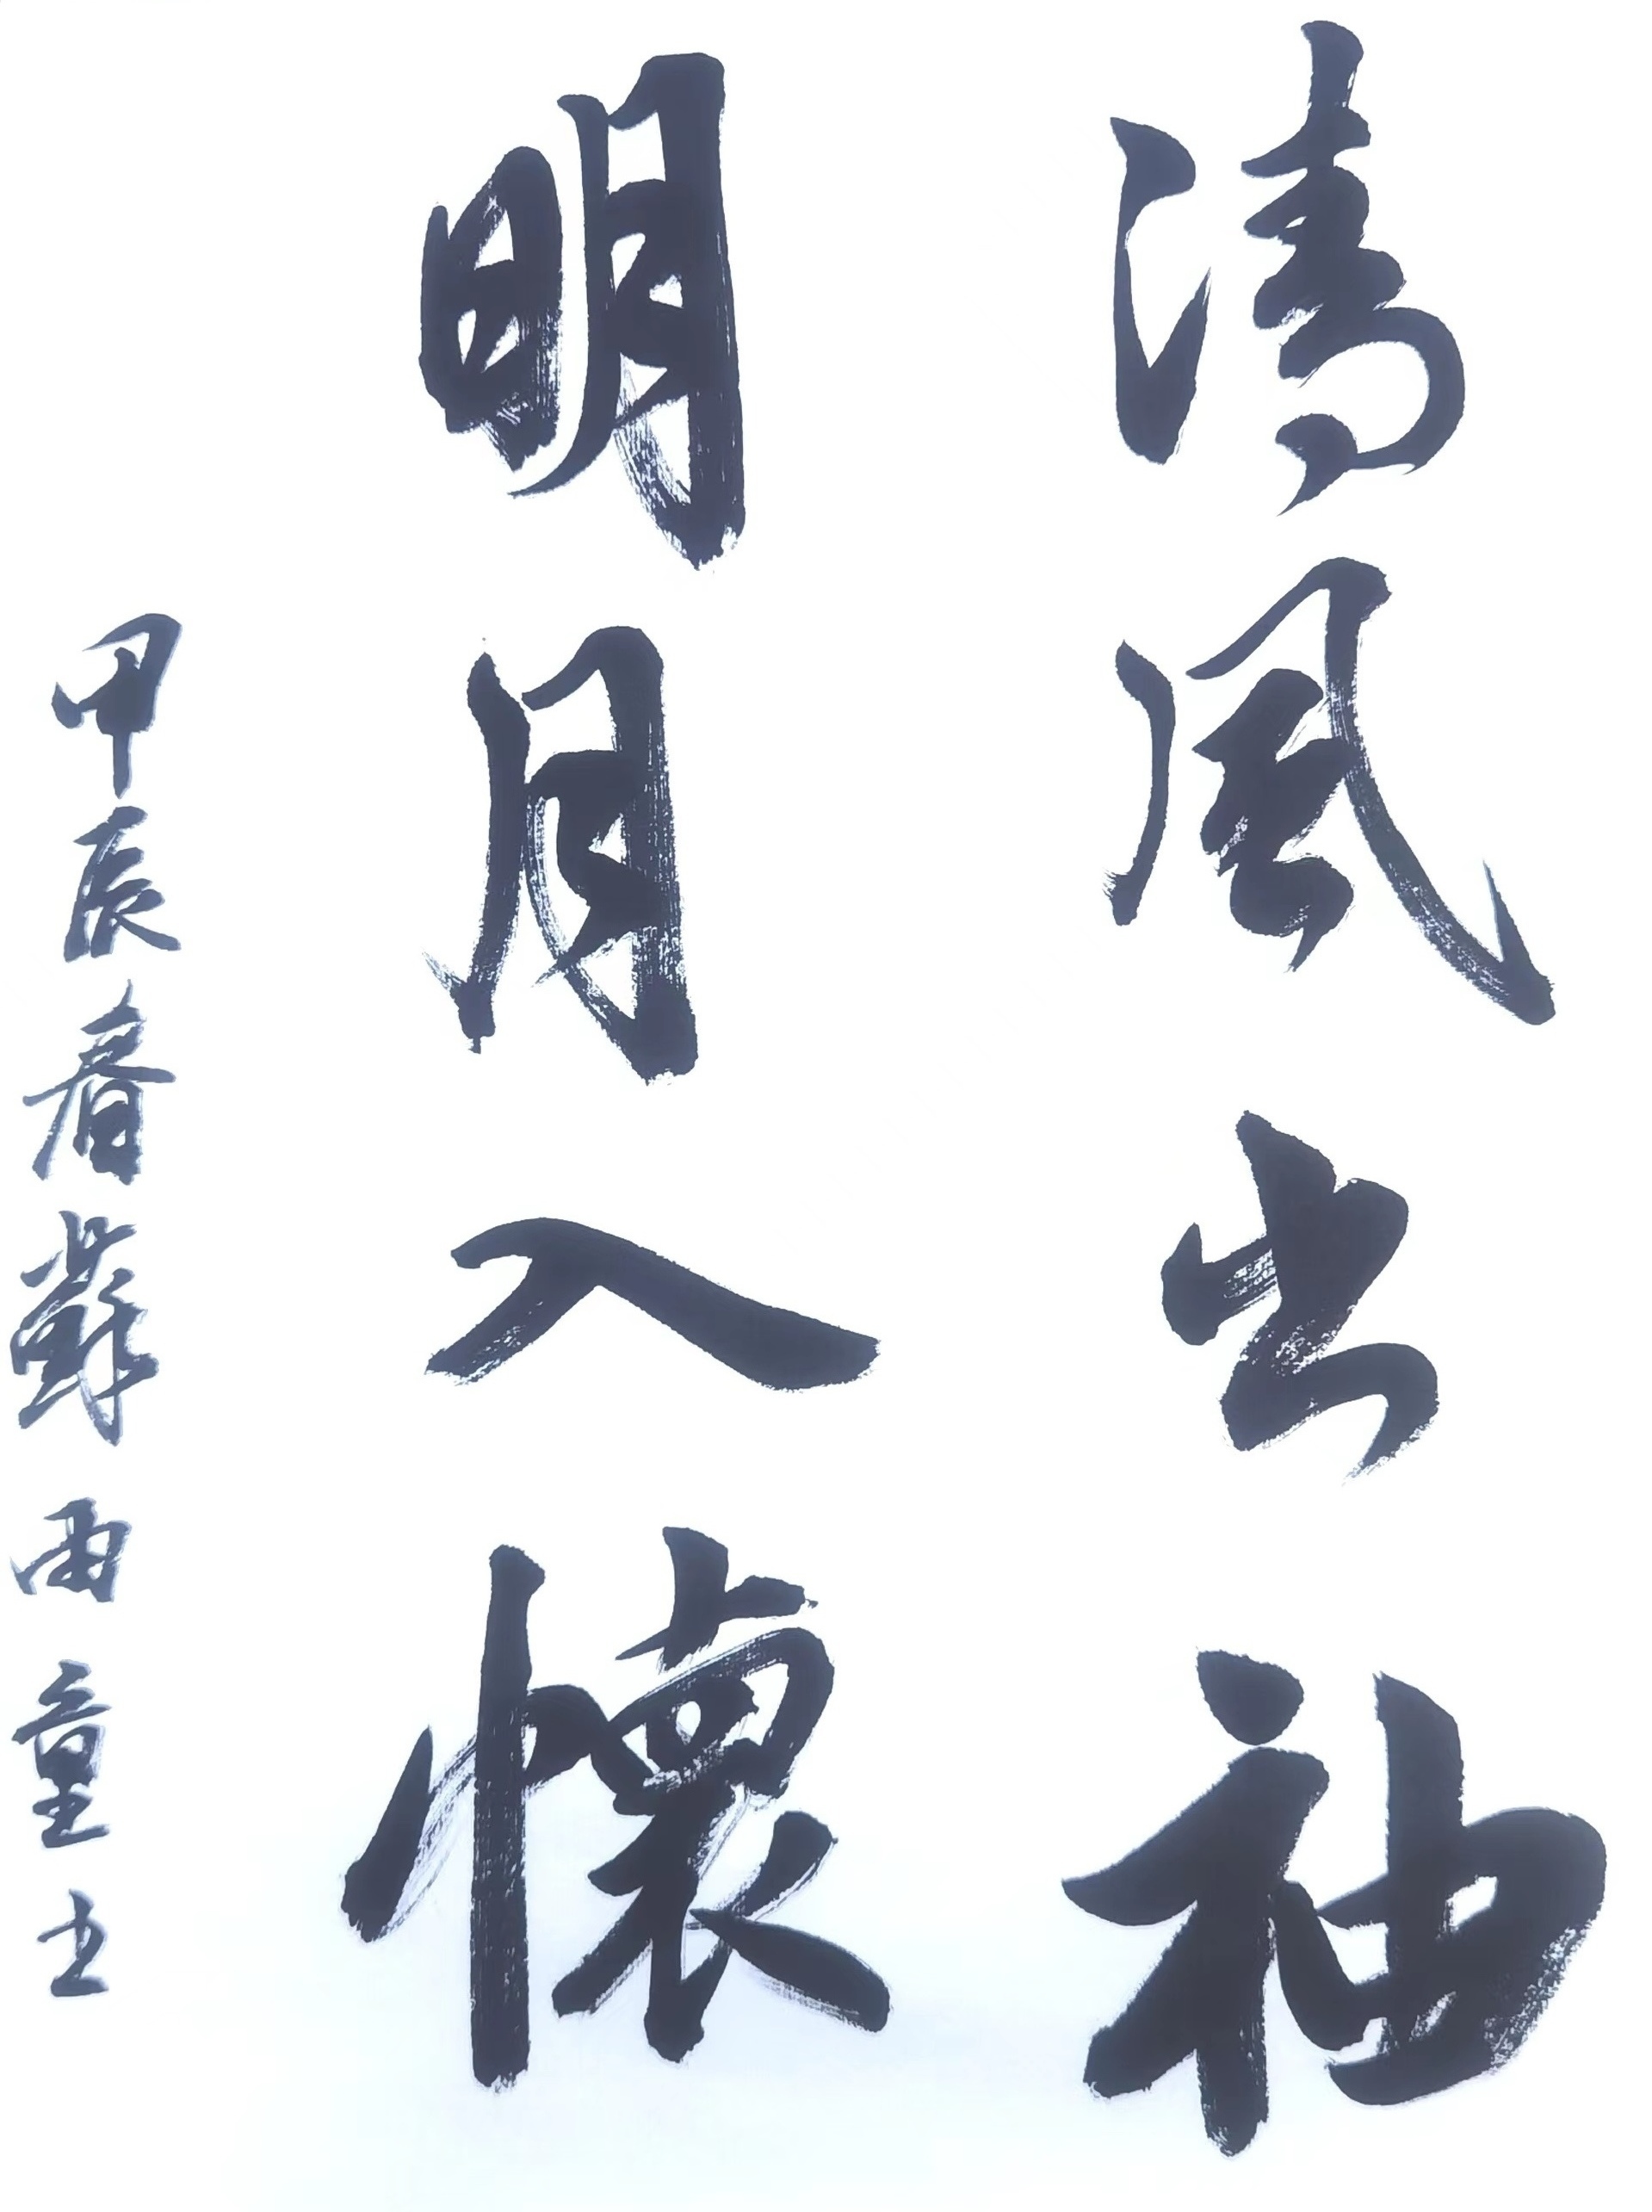 清風出袖
明月入懷
甲辰春蘇雨童书